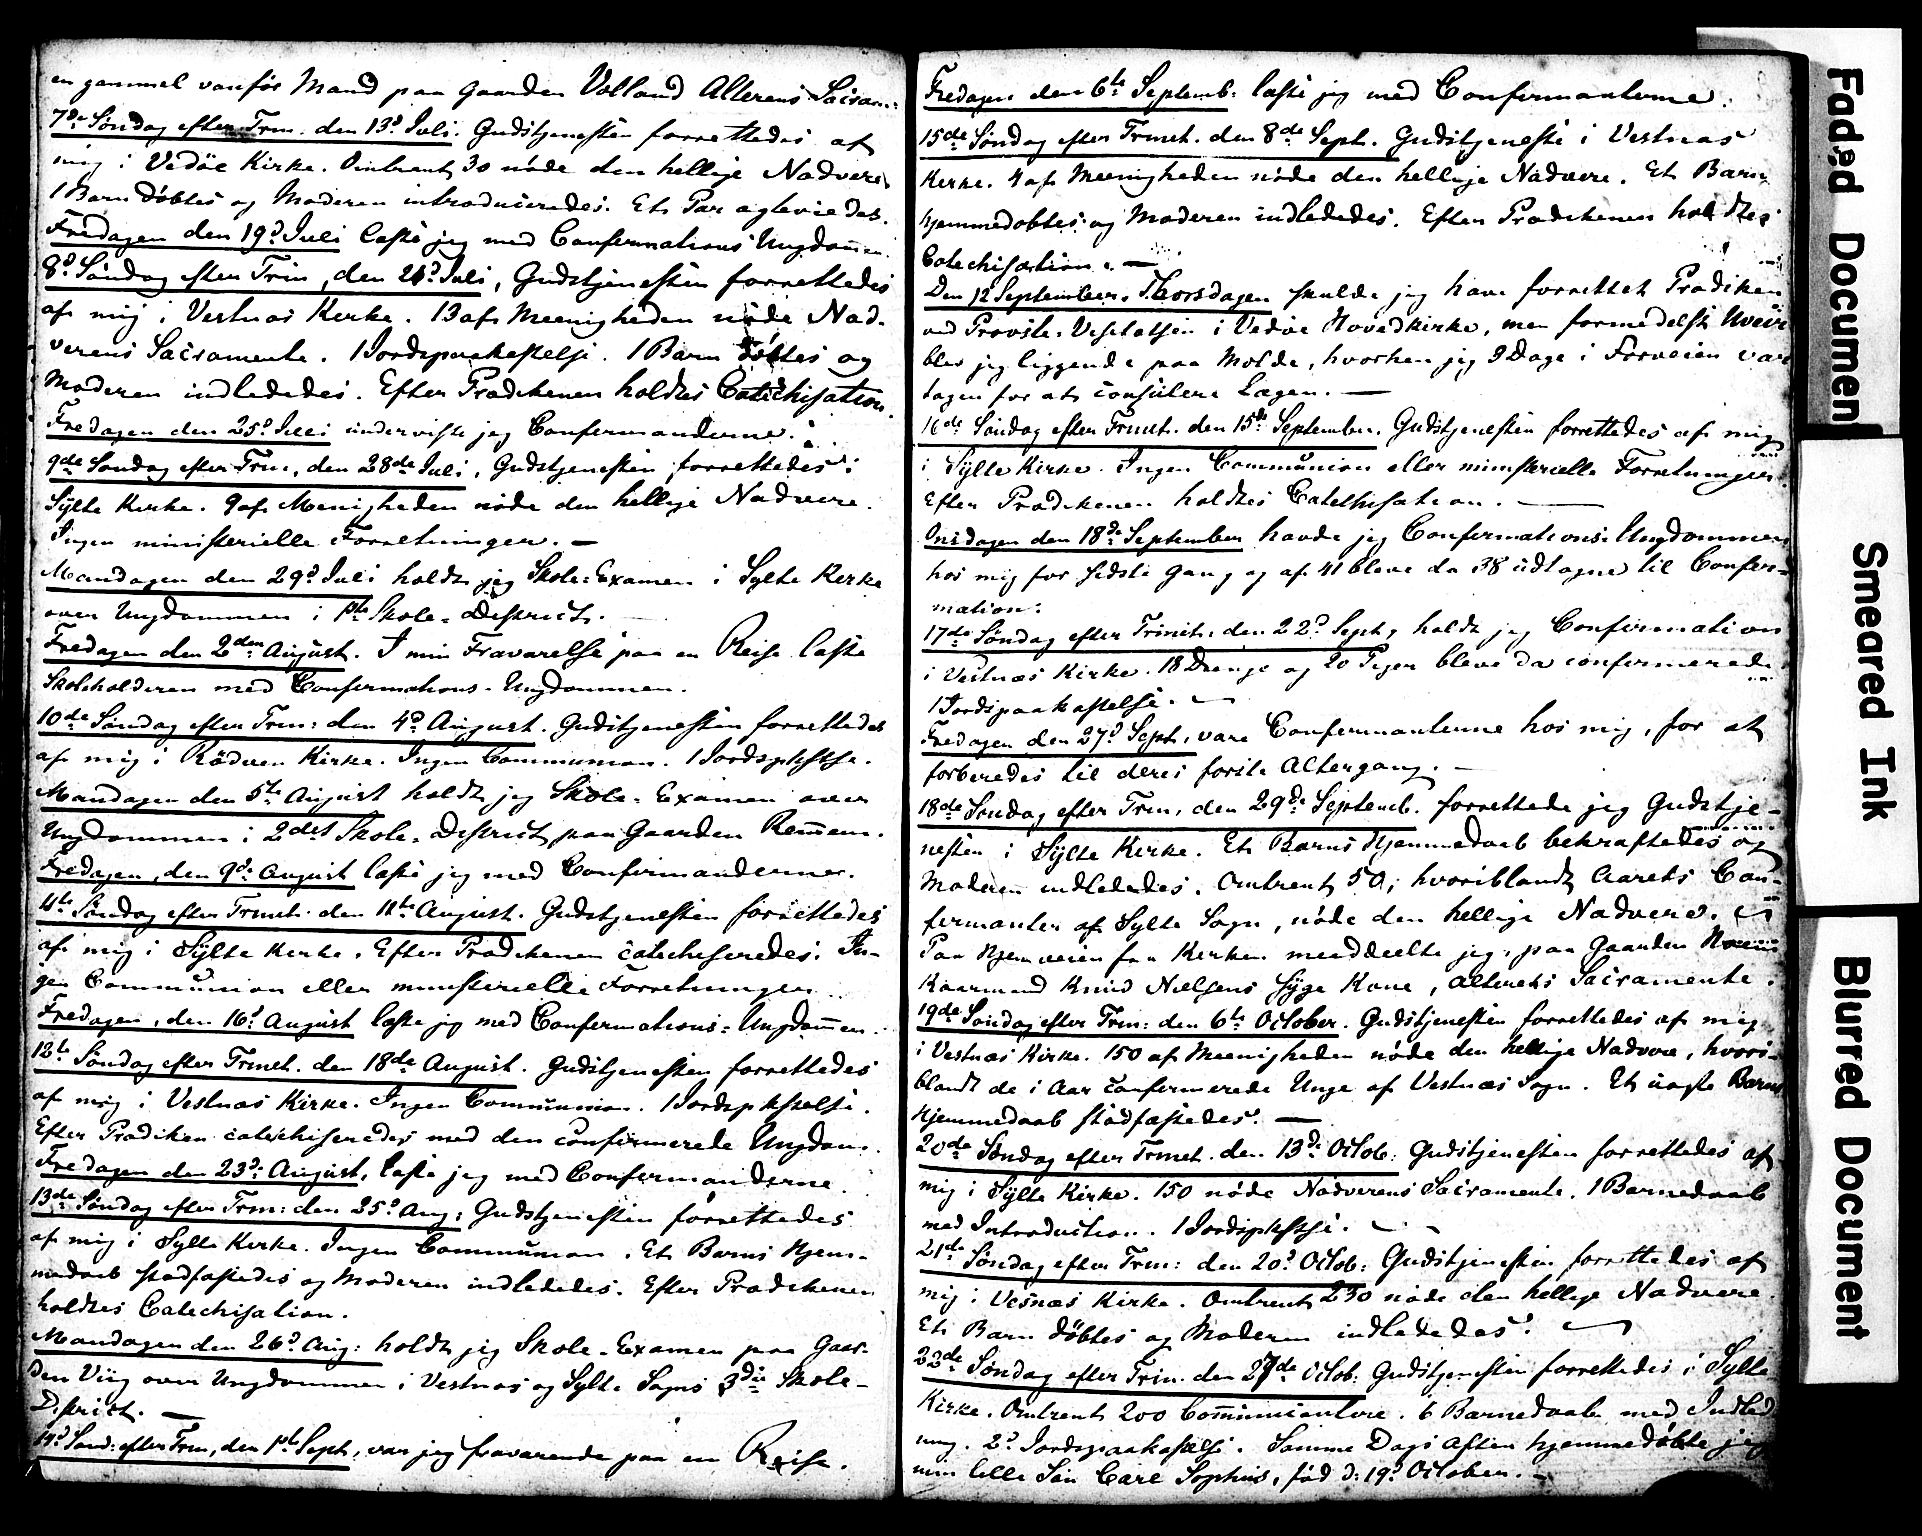 en gammel vanför Mand paa Gaarden Volland Alterens Sacram:
7de Søndag efter Trin. den 13d Juli. Gudstjenesten forrettedes af
mig i Vedöe Kirke. Omtrent 30 nöde den hellige Nadvere
1 Barn döbtes og Moderen introduceredes. Et Par ægteviedes.
Fredagen den 19d Juli læste jeg med Confirmations Ungdomen.
8d Søndag efter Trin, den 21d Juli, Gudstjenesten forrettedes
af mig i Vestnæs Kirke. 13 af Meenigheden nöde Nad-
verens Sacramente. 1 Jordspaakastelse. 1 Barn döbtes og
Moderen indlededes. Efter Prædikenen holdtes Catechisation.
Fredagen den 25d Juli underviste jeg Confirmanderne.
9de Søndag efter Trin, den 28de Juli, Gudstjenesten forrettedes i
Sylte Kirke. 9 af Menigheden nöde den hellige Nadvere.
Ingen ministerielle Forretninger. —
Mandagen den 29d Juli holdt jeg Skole-Examen i Sylte Kirke
over Ungdommen i 1ste Skole-District.
Fredagen den 2den August. I min Fraværelse paa en Reise læste
Skoleholderen med Confirmations-Ungdommen.
10de Søndag efter Trin: den 4d August. Gudstjenesten forrettedes
af mig i Rödven Kirke. Ingen Communion. 1 Jordspkstse.
Mandagen den 5te August holdt jeg Skole-Examen over
Ungdommen i 2det Skole-District paa Gaarden Remmem.
Fredagen, den 9de August læste jeg med Confirmanderne.
11te Søndag efter Trinet. den 11te August. Gudstjenesten forrettedes
af mig i Sylte Kirke. Efter Prædikenen catechiseredes. In-
gen Communion eller ministerielle Forretninger.
Fredagen, den 16d August læste jeg med Confirmations-Ungdomen.
12te Søndag efter Trinet. den 18de August. Gudstjenesten forrettedes
af mig i Vestnæs Kirke. Ingen Communion. 1 Jordspkstelse.
Efter Prædiken catechiseredes med den confirmerede Ungdom.
Fredagen den 23d August, læste jeg med Confirmanderne.
13de Søndag efter Trin: den 25d Aug: Gudstjenesten forrettedes
af mig i Sylte Kirke. Ingen Communion. Et Barns Hjem-
medaab stadfæstedes og Moderen indlededes. Efter Prædikenen
holdtes Catechisation.
Mandagen den 26d Aug: holdt jeg Skole-Examen paa Gaar-
den Viig over Ungdommen i Vestnæs og Sylte Sogns 3die Skole-
District. —
14d Sønd: efter Trin, den 1ste Sept, var jeg fraværende paa en Reise.
Fredagen den 6te Septemb: læste jeg med Confirmanterne.
15de Søndag efter Trinet. den 8de Sept. Gudstjeneste i Vestnæs
Kirke. 4 af Meenigheden nöde den hellige Nadvere. Et Barn
hjemmedöbtes og Moderen indlededes. Efter Prædikenen holdtes
Catechisation. —
Den 12 September, Thorsdagen skulde jeg have forrettet Prædiken
ved Provste-Visitatsen i Vedöe Hovedkirke, men formedelst Uveir
blev jeg liggende paa Molde, hvorhen jeg 9 Dage i Forveien var
tagen for at consulere Lægen. —
16de Søndag efter Trinet. den 15de September. Gudstjenesten forrettedes af mig
i Sylte Kirke. Ingen Communion eller ministerielle Forretninger.
Efter Prædikenen holdtes Catechisation. —
Onsdagen den 18de September havde jeg Confirmations-Ungdommen
hos mig for sidste Gang og af 41 bleve da 38 udtagne til Confir-
mation.
17de Søndag efter Trinit: den 22d Sept, holdt jeg Confirmation
i Vestnæs Kirke. 18 Drenge og 20 Piger bleve da confirmerede.
1 Jordspaakastelse. —
Fredagen den 27d Sept, vare Confirmanterne hos mig, for at
forberedes til deres förste Altergang. —
18de Søndag efter Trin, den 29de Septemb. forrettede jeg Gudstje-
nesten i Sylte Kirke. Et Barns Hjemmedaab bekræftedes og
Moderen indlededes. Omtrent 50, hvoriblandt Aarets Con-
firmanter af Sylte Sogn, nöde den hellige Nadvere.
Paa Hjemveien fra Kirken meddeelte jeg, paa Gaarden
Kaarmand Knud Nielsens syge Kone, Alterets Sacramente.
19de Søndag efter Trin: den 6te October. Gudstjenesten forrettedes af mig
i Vestnæs Kirke. 150 af Meenigheden nöde den hellige Nadvere, hvori-
blandt de i Aar confirmerede Unge af Vestnæs Sogn. Et uægte Barns
Hjemmedaab stadfæstedes. —
20de Søndag efter Trinet. den 13de Octob: Gudstjenesten forrettedes af
mig i Sylte Kirke. 150 nöde Nadverens Sacramente. 1 Barnedaab
med Introduction. 1 Jordspkstse. —
21de Søndag efter Trin: den 20d Octob: Gudstjenesten forrettedes af
mig i Vesnæs Kirke. Omtrent 230 nöde den hellige Nadvere.
Et Barn döbtes og Moderen indlededes. —
22de Søndag efter Trin. den 27de Octob: Gudstjenesten forrettedes i Sylte
Kirke. Omtrent 200 Communicantere. 6 Barnedaab med Indled
ning. 2d Jordspaakastelse. Samme Dags Aften hjemmedöbte jeg
min lille Sön Carl Sophus, föd d: 19d October. —
Faded Document
Smeared Ink
Blurred Document